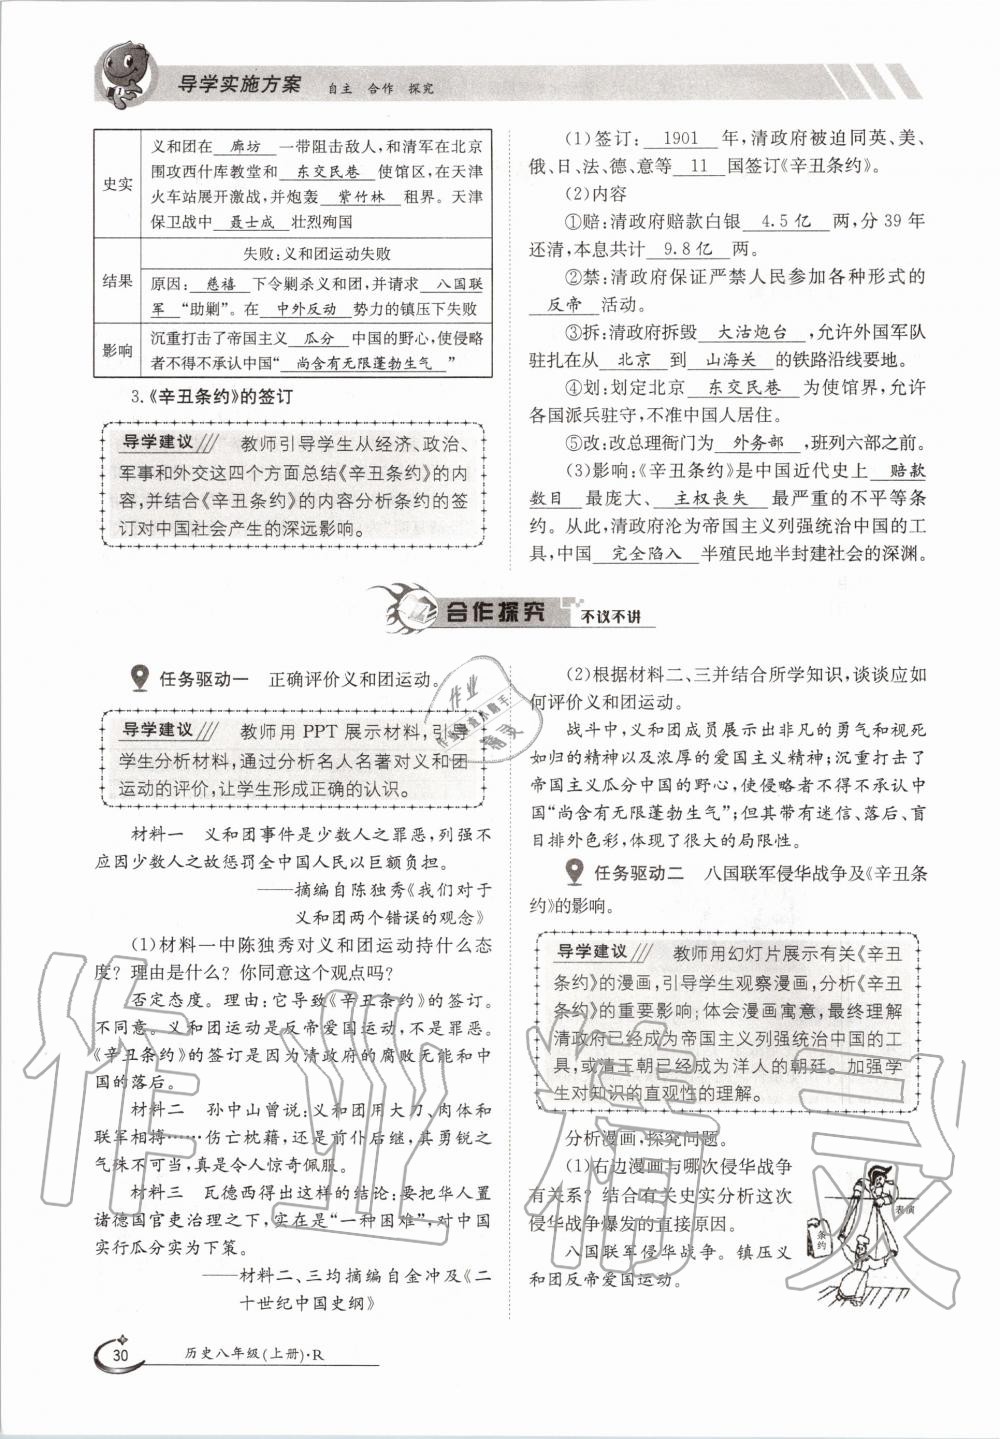 导学实施方案 自主 合作 探究
史实
义和团在 廊坊 一带阻击敌人,和清军在北京
围攻西什库教堂和 东交民巷 使馆区,在天津
火车站展开激战,并炮轰 紫竹林 租界。天津
保卫战中 聂士成 壮烈殉国
结果
失败:义和团运动失败
原因: 慈禧 下令剿杀义和团,并请求 八国联
军 “助剿”。在 中外反动 势力的镇压下失败
影响
沉重打击了帝国主义 瓜分 中国的野心,使侵略
者不得不承认中国“ 尚含有无限蓬勃生气 ”
3.《辛丑条约》的签订
导学建议 教师引导学生从经济、政治、
军事和外交这四个方面总结《辛丑条约》的内
容,并结合《辛丑条约》的内容分析条约的签
订对中国社会产生的深远影响。
(1)签订: 1901 年,清政府被迫同英、美、
俄、日、法、德、意等 11 国签订《辛丑条约》。
(2)内容
①赔:清政府赔款白银 4.5亿 两,分 39 年
还清,本息共计 9.8亿 两。
②禁:清政府保证严禁人民参加各种形式的
反帝 活动。
③拆:清政府拆毁 大沽炮台 ,允许外国军队
驻扎在从 北京 到 山海关 的铁路沿线要地。
④划:划定北京 东交民巷 为使馆界,允许
各国派兵驻守,不准中国人居住。
⑤改:改总理衙门为 外务部 ,班列六部之前。
(3)影响:《辛丑条约》是中国近代史上 赔款
数目 最庞大、 主权丧失 最严重的不平等条
约。从此,清政府沦为帝国主义列强统治中国的工
具,中国 完全陷入 半殖民地半封建社会的深渊。
合作探究 不议不讲
任务驱动一 正确评价义和团运动。
导学建议 教师用 PPT 展示材料,引导
学生分析材料,通过分析名人名著对义和团
运动的评价,让学生形成正确的认识。
材料一 义和团事件是少数人之罪恶,列强不
应因少数人之故惩罚全中国人民以巨额负担。
——摘编自陈独秀《我们对于
义和团两个错误的观念》
(1)材料一中陈独秀对义和团运动持什么态
度? 理由是什么? 你同意这个观点吗?
否定态度。理由:它导致《辛丑条约》的签订。
不同意。义和团运动是反帝爱国运动,不是罪恶。
《辛丑条约》的签订是因为清政府的腐败无能和中
国的落后。
材料二 孙中山曾说:义和团用大刀、肉体和
联军相搏……伤亡枕藉,还是前仆后继,其勇锐之
气殊不可当,真是令人惊奇佩服。
材料三 瓦德西得出这样的结论:要把华人置
诸德国官吏治理之下,实在是“一种困难”,对中国
实行瓜分实为下策。
——材料二、三均摘编自金冲及《二
十世纪中国史纲》
(2)根据材料二、三并结合所学知识,谈谈应如
何评价义和团运动。
战斗中,义和团成员展示出非凡的勇气和视死
如归的精神以及浓厚的爱国主义精神,沉重打击了
帝国主义瓜分中国的野心,使侵略者不得不承认中
国“尚含有无限蓬勃生气”;但其带有迷信、落后、盲
目排外色彩,体现了很大的局限性。
任务驱动二 八国联军侵华战争及《辛丑条
约》的影响。
导学建议 教师用幻灯片展示有关《辛丑
条约》的漫画,引导学生观察漫画,分析《辛丑
条约》的重要影响;体会漫画寓意,最终理解
清政府已经成为帝国主义列强统治中国的工
具,或清王朝已经成为洋人的朝廷。加强学
生对知识的直观性的理解。
分析漫画,探究问题。
(1)右边漫画与哪次侵华战争
有关系? 结合有关史实分析这次
侵华战争爆发的直接原因。
八国联军侵华战争。镇压义
和团反帝爱国运动。
表演
条约
30 历史八年级(上册)·R
作业精灵